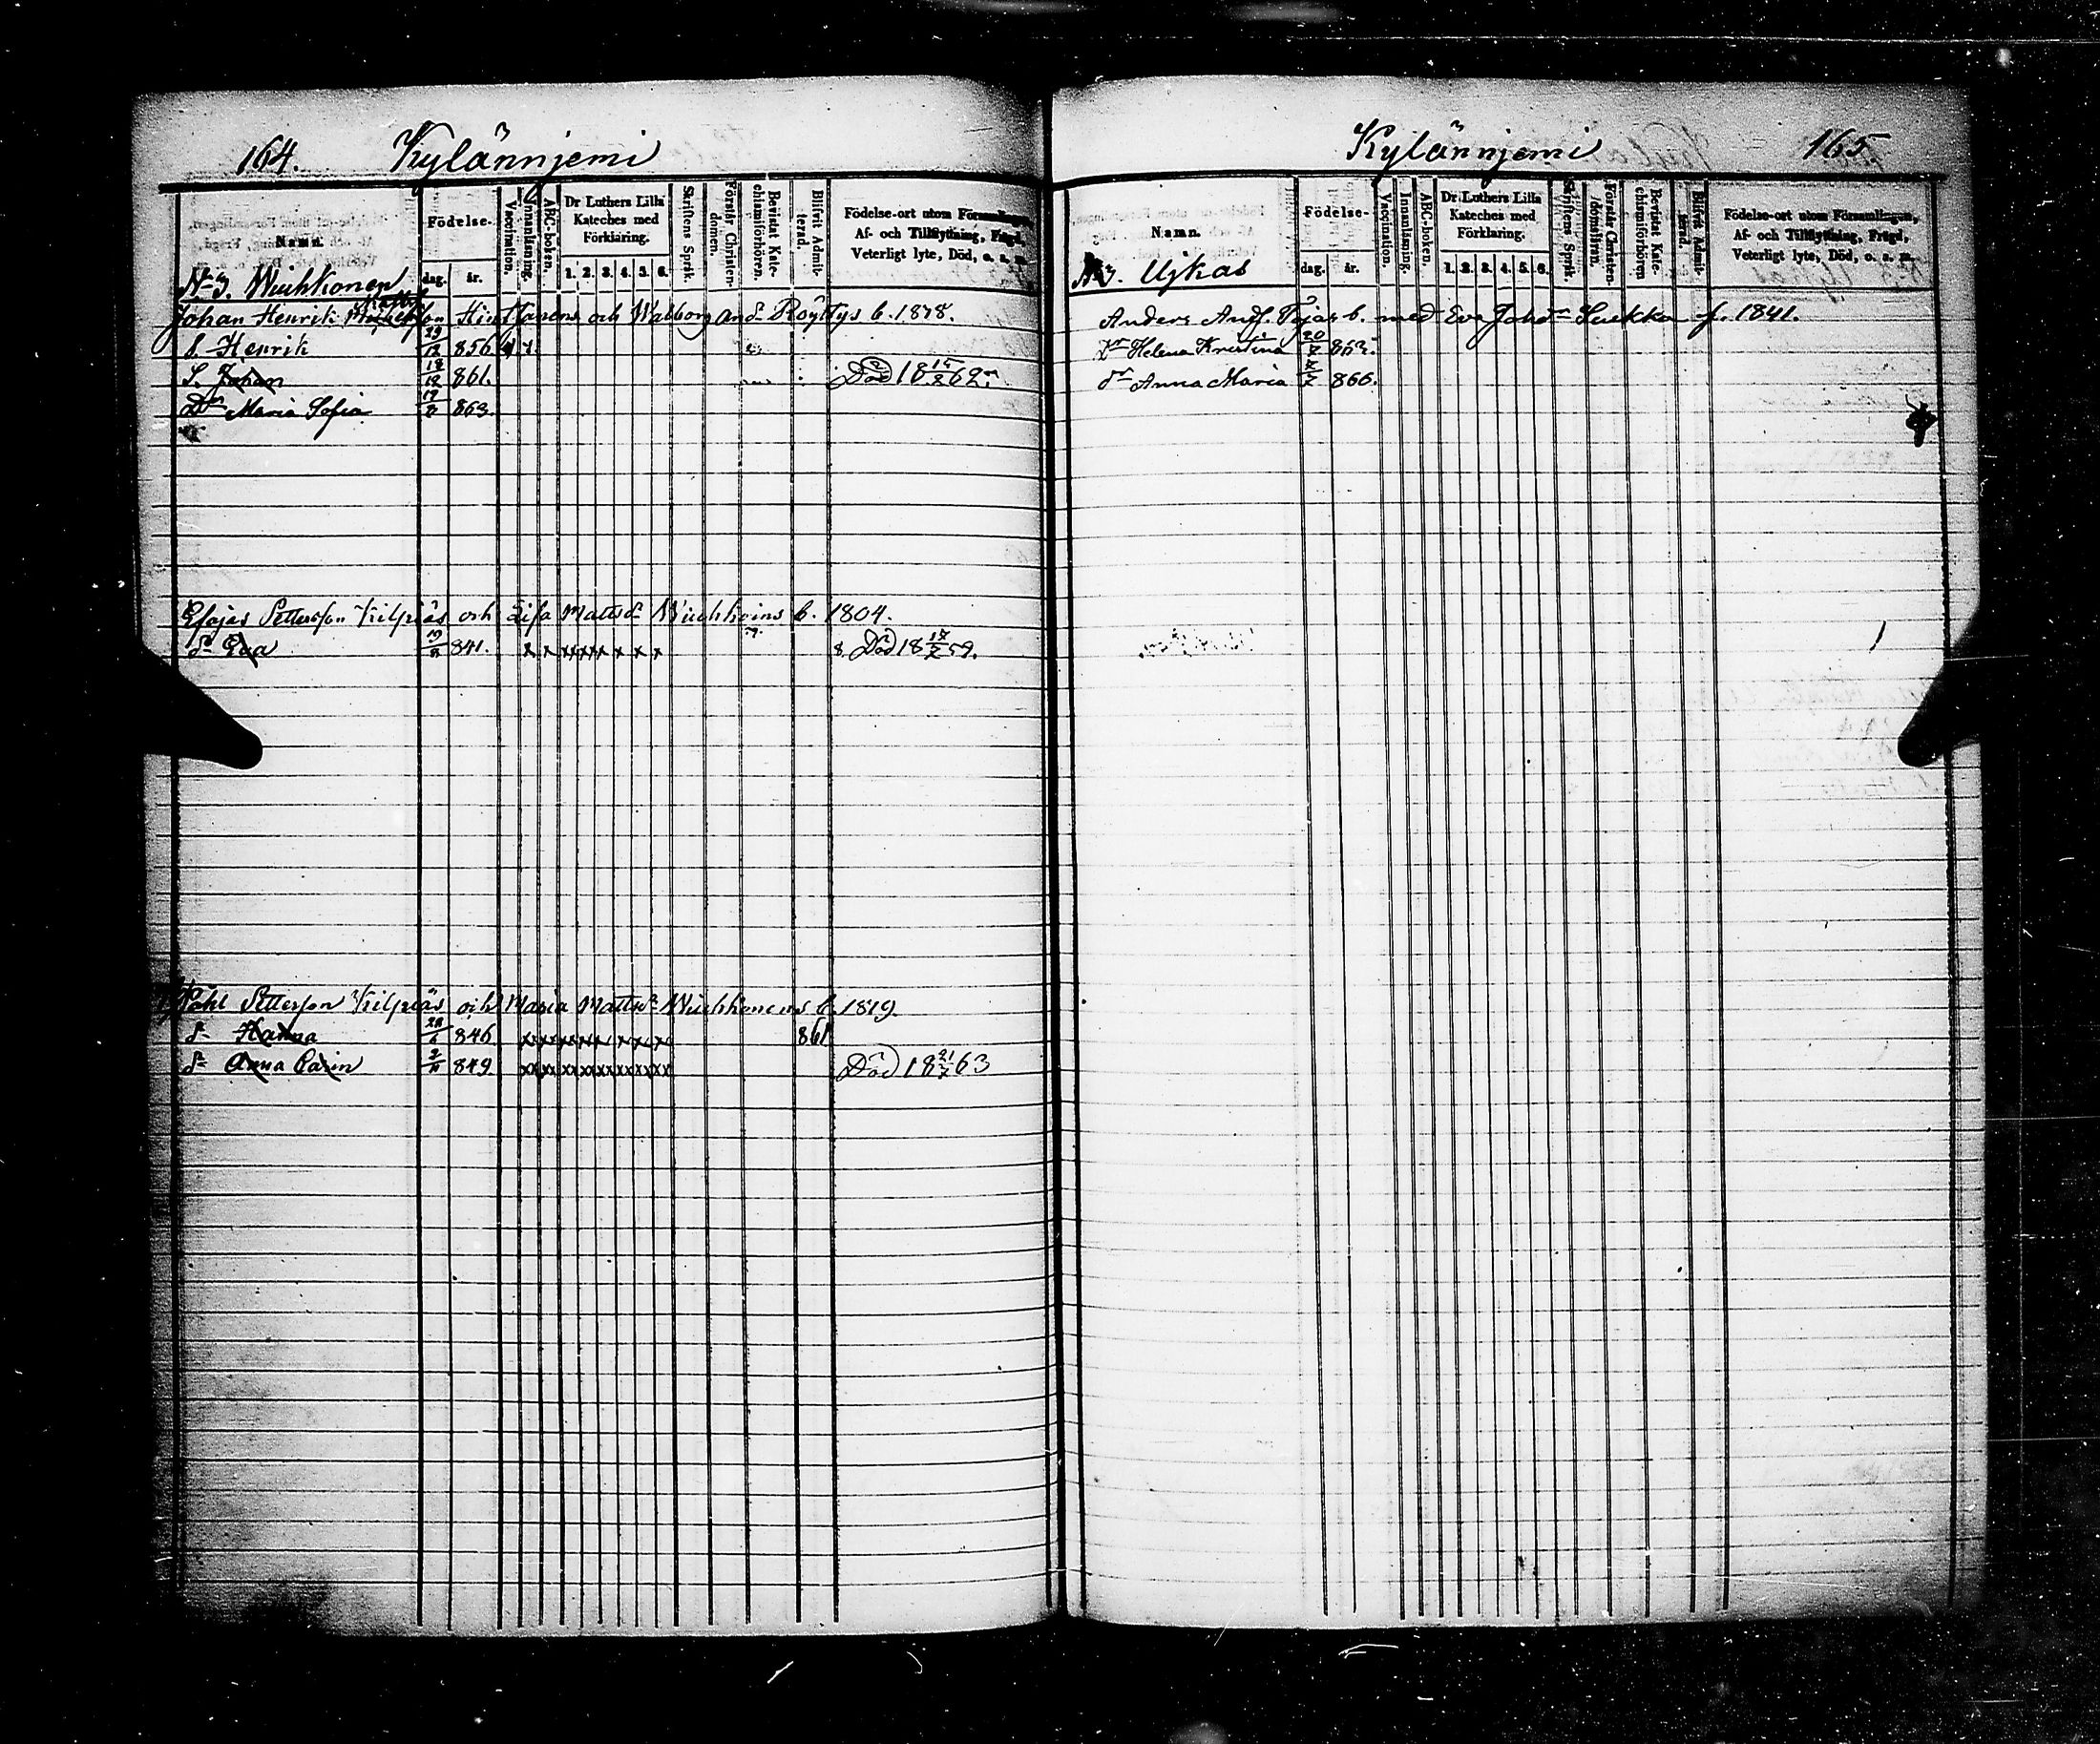 164. Kylännjemi
Namn.
Födelse-
dag. år.
Vaccination.
Innanläsning.
ABC-boken.
Dr Luthers Lilla Kateches med Förklaring.
1. 2. 3. 4. 5. 6.
Skriftens Språk.
Förstår Christendomen.
Bevistat Katechismiförhören.
Blifvit Admitterad.
Födelse-ort utom Församlingen, Af- och Tillflyttning, Frägd, Veterligt lyte, Död, o. s. m.
No 3. Wuchkonen
Johan Henrik och Walborg And. Röyttys b. 1878.
S. Henrik 29/12 856
S. Johan 18/12 861. Död 18 15/2 62.
Dr Maria Sofia 863.
Esajas Pettersson Kilpiäs och Lisa Mattsdr b. 1804.
dr Eva 19/8 841. x x xxxxx x x x 8. Död 18 59.
Påhl Pettersson Kilpiäs och Maria Mattsdr Wuchkonens b. 1819.
dr Hanna 846 861
dr Anna Carin 2/11 849 Död 18 21/7 63
Kylännjemi 165
Namn.
Födelse-
dag. år.
Vaccination.
Innanläsning.
ABC-boken.
Dr Luthers Lilla Kateches med Förklaring.
1. 2. 3. 4. 5. 6.
Skriftens Språk.
Förstår Christendomsläran.
Bevistat Katechismiförhören
Blifvit Admitterad.
Födelse-ort utom Församlingen, Af- och Tillflyttning, Frägd, Veterligt lyte, Död, o. s. m.
No 3. Ujkas
Anders Andf. b. med Eva Johdr Suckka f. 1841.
Dr Helena Kristina 20/7 863.
dr Anna Maria 866.